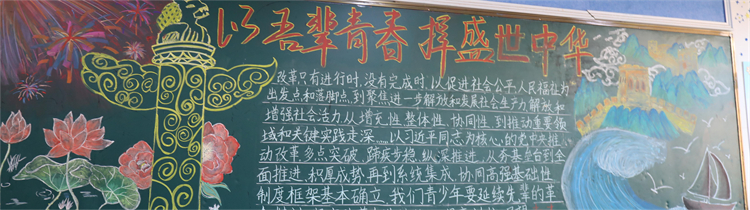 以吾辈青春 择盛世中华
改革只有进行时,没有完成时,以促进社会公平人民福祉为
出发点和落脚点,到聚焦进一步解放和发展社会生产力解放和
增强社会活力从增支性,整体性,协同性,到推动重要领
域和关键实践走深……以习近平同志为核心,的党中央推
动改革,多点突破,蹄疾步稳,纵深推进,从夯基垒台到全
面推进,积厚成势,再到系统集成,协同高强基础性
制度框架基本确立,我们青少年要延续先辈的革